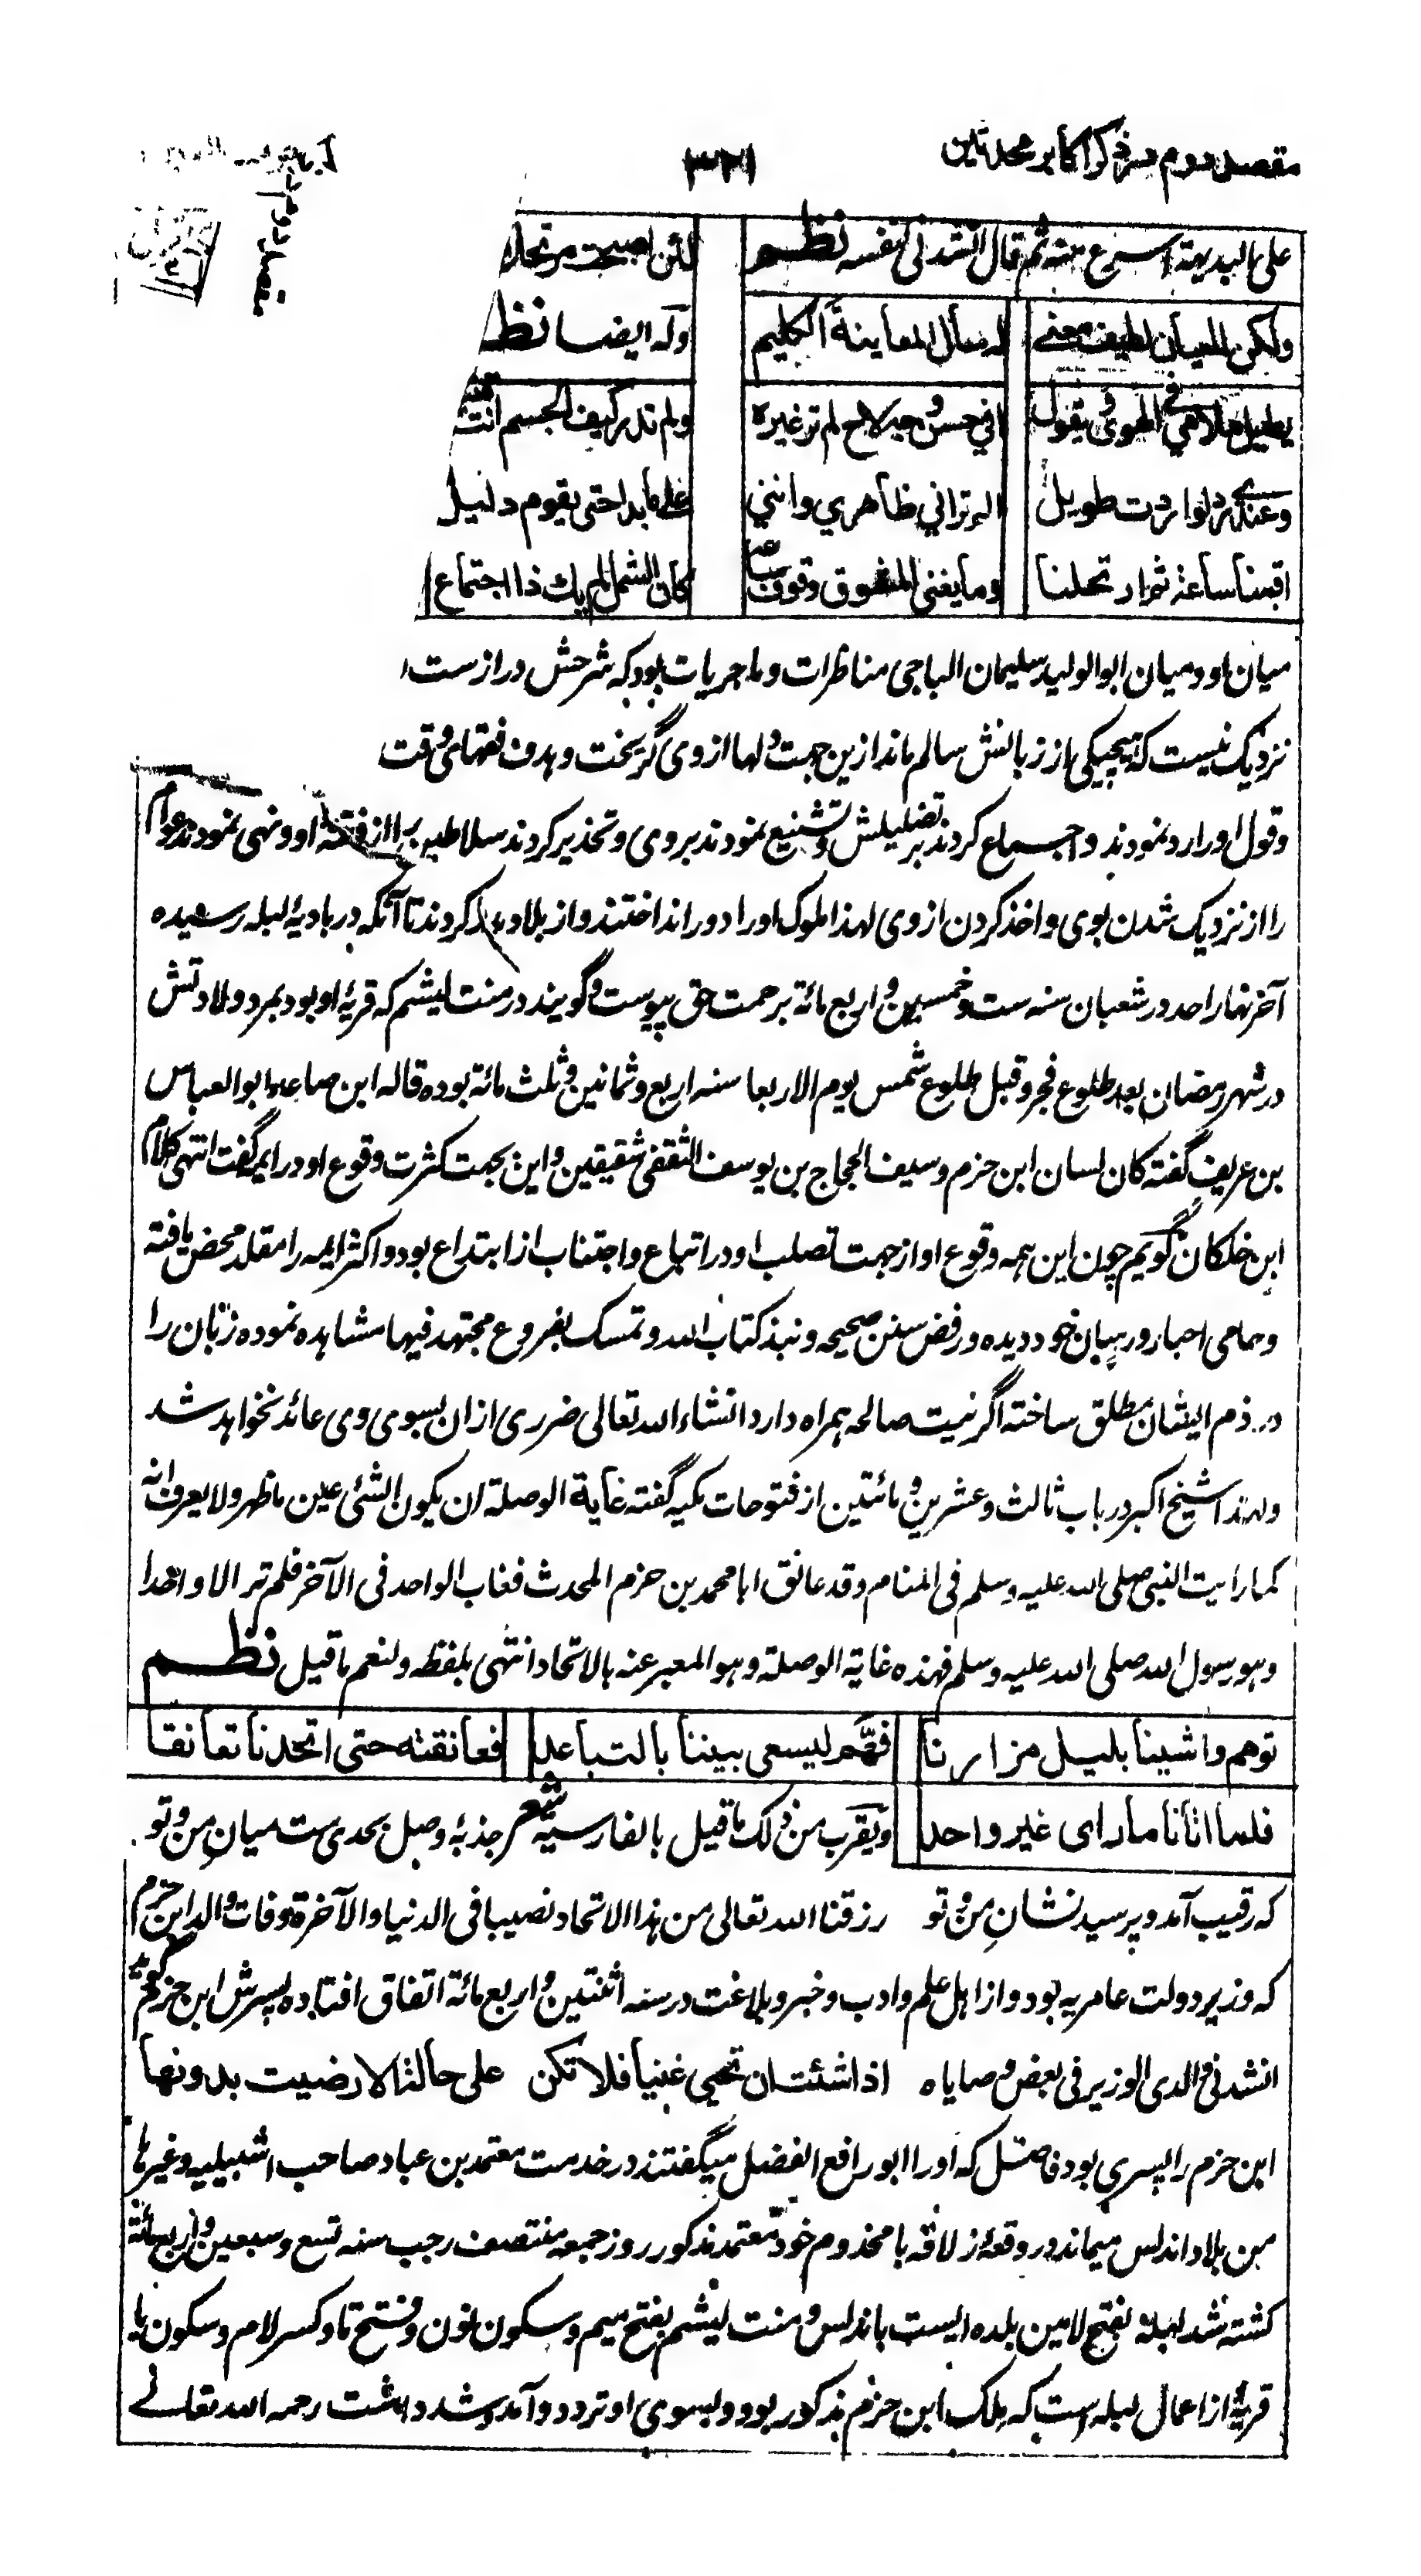 مقصد دوم در ذکر اکابر محدثین
۳۲۱
علی البدیهة اسرع منه ثم قال انشدنی لنفسه نظم لئن اصبحت مرتحلا
ولکن للعیان لطیف معنی له سأل المعاینة الکلیم وله ایضا نظ
یطیل ملامی فی الهوی و یقول افی حسن وجه لاح لم تر غیره ولم تدر کیف الجسم انت
وعندی رد لو اردت طویل الم ترانی ظاهری واننی علی ما بدا حتی یقوم دلیل
اقمنا ساعة ثم ارتحلنا وما یغنی المشوق وقوف ساعه کان الشمل لم یک ذا اجتماع
میان او و میان ابو الولید سلیمان الباجی مناظرات و ماجریات بود که شرحش دراز ست
نزدیک نیست که هیچیکی از زبانش سالم ماند ازین جهت دلها از وی گریخت و هدف فقهای وقت
وقول او را رد نمودند و اجماع کردند بر تضلیلش و تشنیع نمودند بر وی و تحذیر کردند سلاطین را از فتنه او و نهی نمودند عوام
را از نزدیک شدن بوی و اخذ کردن از وی لهذا ملوک او را دور انداختند و از بلاد بدر کردند تا آنکه در بادیۀ لبله رسیده
آخر نهار احد در شعبان سنه ست و خمسین و اربع مائة برحمت حق پیوست و گویند در منت لیشم که قریۀ او بود بمرد ولادتش
در شهر رمضان بعد طلوع فجر و قبل طلوع شمس یوم الاربعا سنه اربع و ثمانین و ثلث مائة بوده قاله ابن صاعد ابو العباس
بن عریف گفته کان لسان ابن حزم و سیف الحجاج بن یوسف الثقفی شقیقین و این بجهت کثرت وقوع او در ایمه گفت انتهی کلام
ابن خلکان گویم چون این همه وقوع او از جهت تصلب او در اتباع و اجتناب از ابتداع بود و اکثر ایمه را مقلد محض یافته
و حامی احبار و رهبان خود دیده و رفض سنن صحیحه و نبذ کتاب الله و تمسک بفروع مجتهد فیها مشاهده نموده زبان را
در ذم ایشان مطلق ساخته اگر نیت صالحه همراه دارد انشاء الله تعالی ضرری ازان بسوی وی عائد نخواهد شد
ولهذا شیخ اکبر در باب ثالث و عشرین و مائتین از فتوحات مکیه گفته غایة الوصلة ان یکون الشئ عین ما ظهر ولا یعرف انه
کما رایت النبی صلی الله علیه وسلم فی المنام وقد عانق ابا محمد بن حزم المحدث فغاب الواحد فی الآخر فلم تر الا واحدا
وهو رسول الله صلی الله علیه وسلم فهذه غایة الوصلة وهو المعبر عنه بالاتحاد انتهی بلفظه ولنعم ما قیل نظم
توهم واشینا بلیل مزارنا فهم لیسعی بیننا بالتباعد فعانقته حتی اتحدنا تعانقا
فلما اتانا ما رای غیر واحد ویقرب من ذلک ما قیل بالفارسیه شعر جذبۀ وصل بحدی ست میانِ من و تو
که رقیب آمد و پرسید نشانِ من و تو رزقنا الله تعالی من هذا الاتحاد نصیبا فی الدنیا والآخرة وفات والد ابن حزم
که وزیر دولت عامریه بود و از اهل علم و ادب و خبر و بلاغت در سنه اثنتین و اربع مائة اتفاق افتاده پسرش ابن حزم گوید
انشدنی والدی الوزیر فی بعض وصایاه اذا شئت ان تحیی غنیا فلا تکن علی حالة الا رضیت بدونها
ابن حزم را پسری بود فاضل که او را ابو رافع الفضل میگفتند در خدمت معتمد بن عباد صاحب اشبیلیه و غیرها
من بلاد اندلس میماند در وقعۀ زلاقه با مخدوم خود معتمد مذکور روز جمعه منتصف رجب سنه تسع و سبعین و اربع مائة
کشته شد لبله بفتح لامین بلده ایست باندلس و منت لیشم بفتح میم و سکون نون و فتح تا و کسر لام و سکون یا
قریۀ از اعمال لبله است که ملک ابن حزم مذکور بود و بسوی او تردد و آمد و شد داشت رحمه الله تعالی